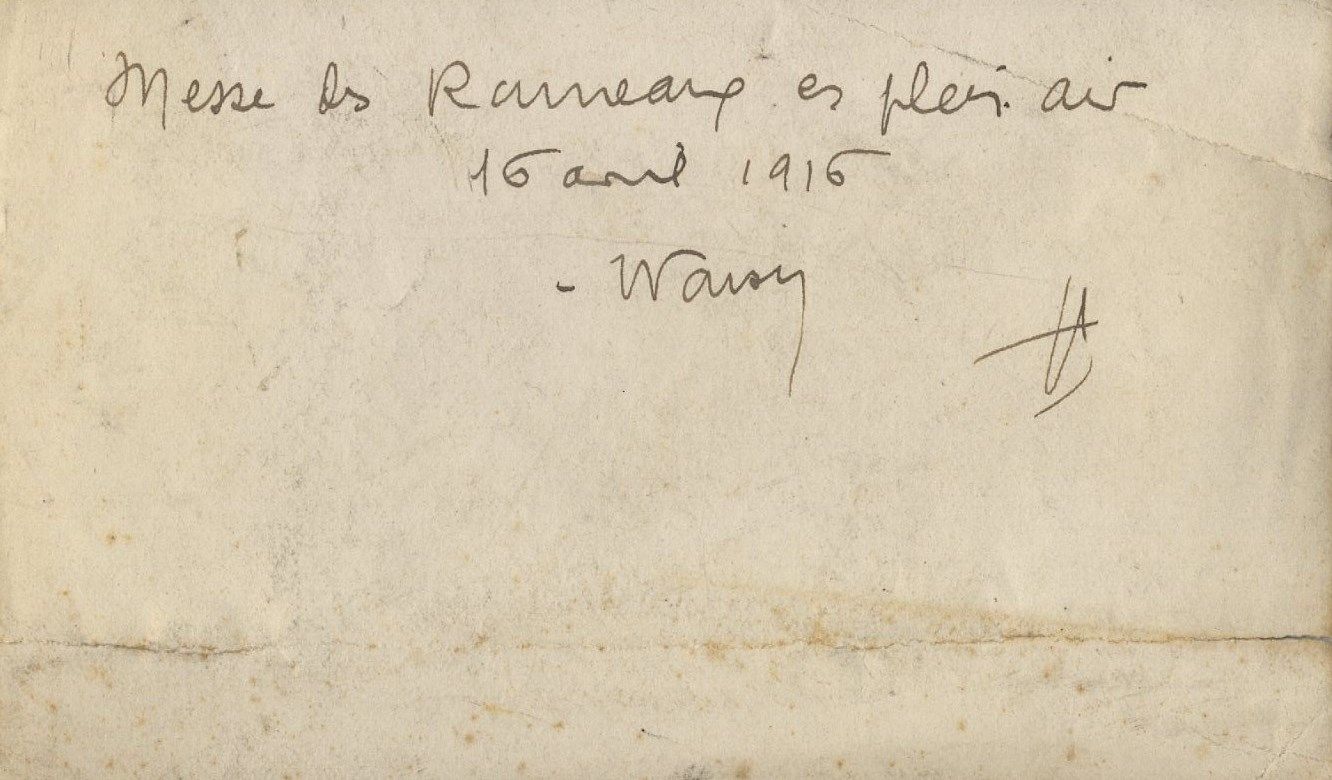 Messe des Rameaux en plein air
16 avril 1916
- Warsy